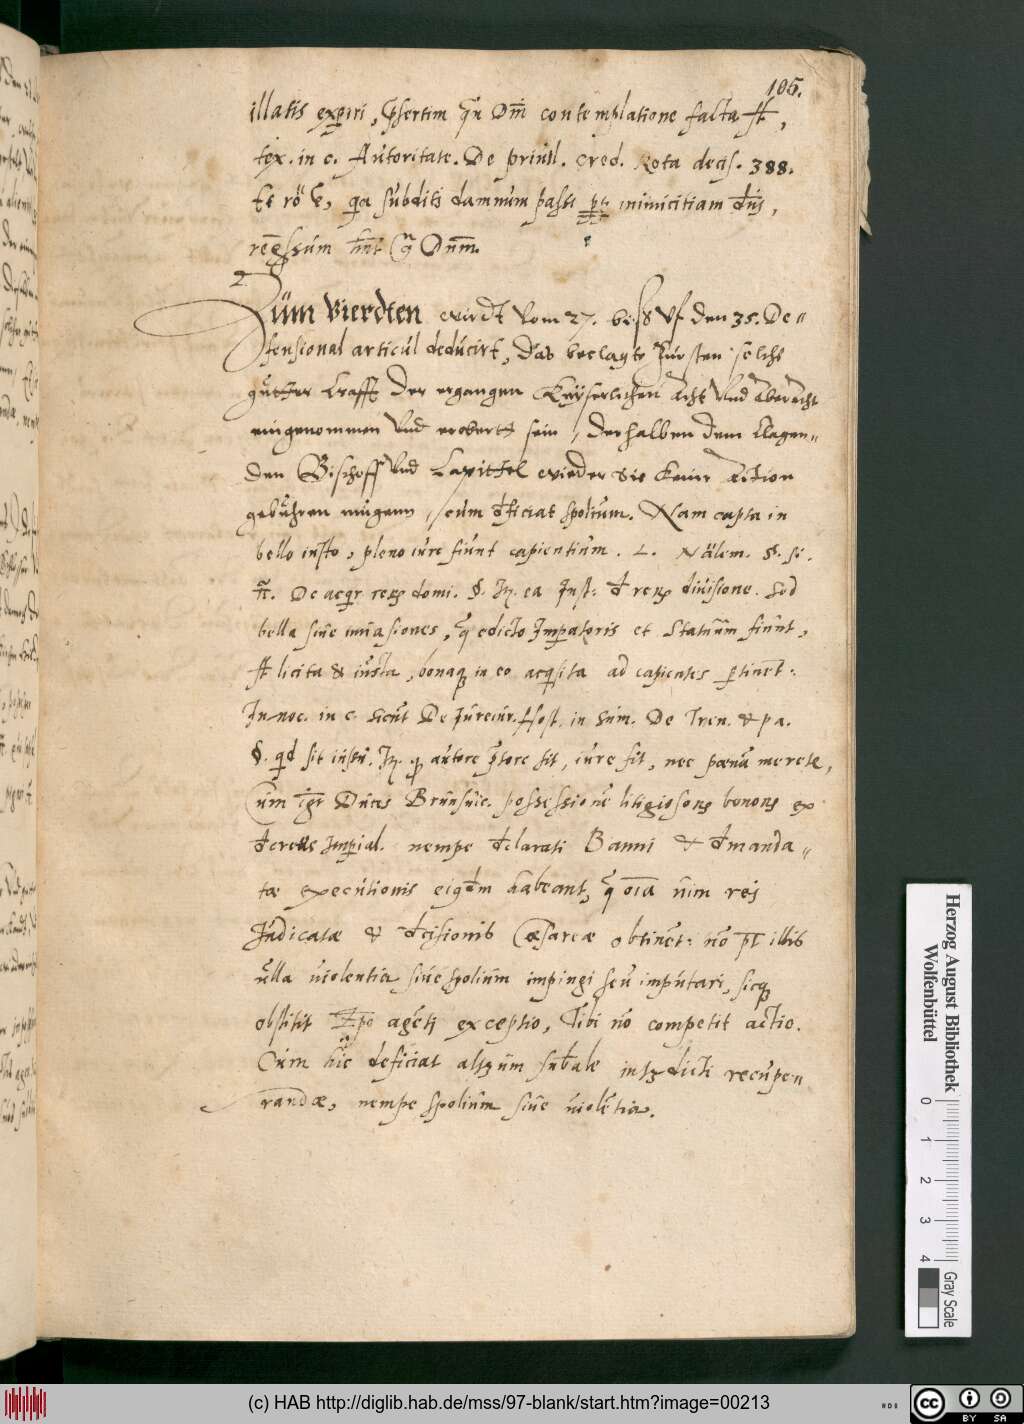 105.
illatis exp̲iri, p̄sertim qn̄ Dn̄i contemplatione facta st̄,
tex. in c. Autoritate. De privil. Cred. Rota decis. 388.
qa subditi damnum passi inimicitiam
Dnm̄.
Zum Vierdten wirdt vom 27. biß vf den 35. De=
fensional articul deducirt, Das beclagte Fürsten solche
gutter krafft der ergangen Keyserlichen Acht vnd Aberacht
eingenommen vnd erobertt sein, derhalben dem klagen=
den Bischoff vnd Capittel wieder Sie keine Action
gebühren mugenn, cum deficiat spolium. Nam capta in
bello iusto, pleno iure fiunt capientium. L. Nälem. §. si.
De acqr. rerꝫ domi. §. Itꝫ. ea Inst: rerꝫ divisione. Sed
bella sive invasiones, q̄ edicto Imperatoris et Statuum fiunt,
st̄ licita & iusta, bonaqꝫ in eo acq̄sita ad capientes p̲tinēt:
Innoc. in c. sicut De Iureiur. Host. in Sum. De Treu. & pa.
§. qd sit iustu. Itꝫ. autore p̄tore fit, iure fit, nec pœnā meretr,
Cum igr Duces Brunsuic. possessionē litigiosorꝫ bonorꝫ ex
Imp̲ial. nempe declarati Banni & demanda=
tæ executionis habeant, q̄ oīa uim rei
Iudicatæ & decisionis Cæsareæ obtinēt: nō pt̄ illis
ulla uiolentia siue spolium impingi seu imputari, sicqꝫ
obstitit agēti exceptio, Tibi nō competit actio.
Cum hic deficiat alterum intꝫdicti recupe=
randæ, nempe spolium siue uiolētia.
Herzog August Bibliothek
Wolfenbüttel
0 1 2 3 4
Gray Scale
(c) HAB http://diglib.hab.de/mss/97-blank/start.htm?image=00213
cc BY SA